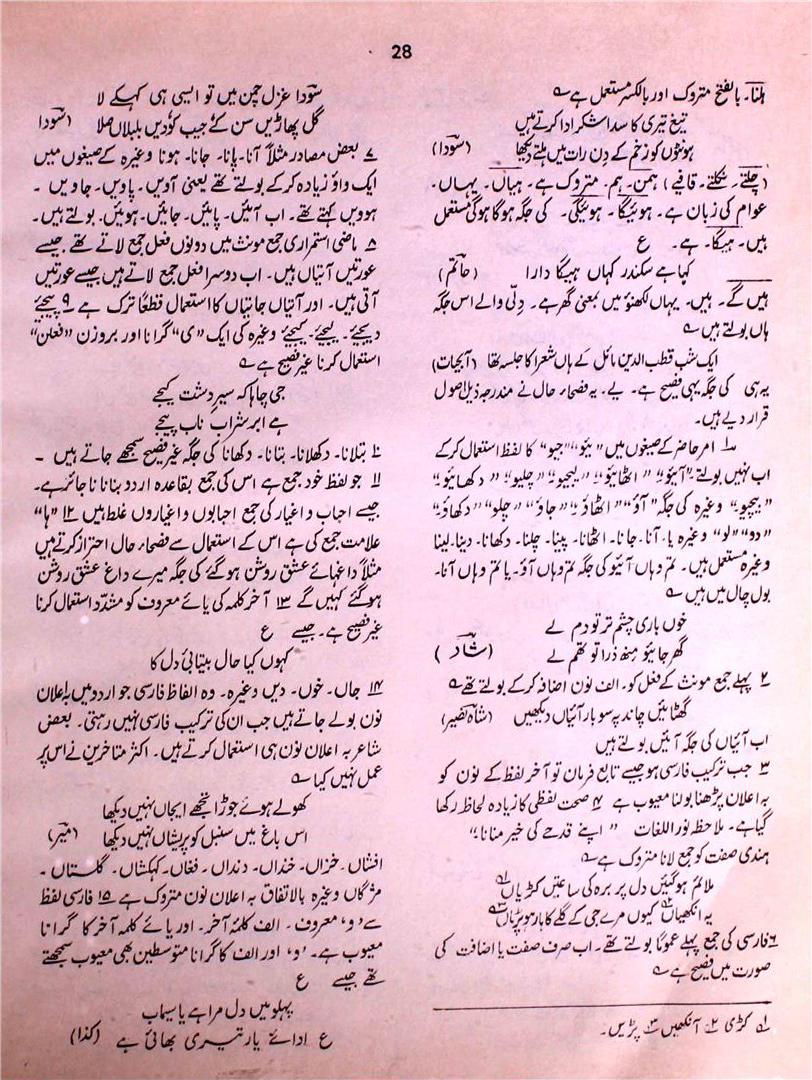 28
ہلنا۔ بالفتح متروک اور بالکسر مستعمل ہے ؎
تیغ تیری کا سدا شکر ادا کرتے ہیں
ہونٹوں کو زخم کے دن رات میں ہلتے دیکھا (سودا)
(چلتے۔ نکلتے۔ قافیے) ہمن۔ ہم۔ متروک ہے۔ ہیاں۔ یہاں۔
عوام کی زبان ہے۔ ہوئیگا۔ ہوئیگی۔ کی جگہ ہوگا ہوگی مستعمل
ہیں۔ ہیگا۔ ہے۔ ع
کہا ہے سکندر کہاں ہیگا دارا (حاتم)
ہیں گے۔ ہیں۔ یہاں لکھنؤ میں بمعنی گھر ہے۔ دِلّی والے اس جگہ
ہاں بولتے ہیں ؎
ایک شب قطب الدین مائل کے ہاں شعرا کا جلسہ تھا (آبحیات)
یہ ہی کی جگہ یہی فصیح ہے۔ بے۔ یہ فصحاء حال نے مندرجہ ذیل اصول
قرار دیے ہیں۔
۱ امر حاضر کے صیغوں میں "ئیو" "جیو" کا لفظ استعمال کر کے
اب نہیں بولتے۔ "آئیو" "اٹھائیو" "لیجیو" "چلیو" "دکھائیو"
"پیجیو" وغیرہ کی جگہ "آؤ" "اٹھاؤ" "جاؤ" "چلو" "دکھاؤ"
"دو" "لو" وغیرہ یا۔ آنا۔ جانا۔ اٹھانا۔ پینا۔ چلنا۔ دکھانا۔ دینا۔ لینا
وغیرہ مستعمل ہیں۔ تم وہاں آئیو کی جگہ تم وہاں آؤ۔ یا تم وہاں آنا۔
بول چال میں ہیں ؎
خوں باری چشم تر تو دم لے
گھر جائیو منھ ذرا تو تھم لے (شاد)
۲ پہلے جمع مونث کے فعل کو۔ الف نون اضافہ کر کے بولتے تھے ؎
گھٹائیں چاند پہ سو بار آئیاں دیکھیں (شاہ نصیر)
اب آئیاں کی جگہ آئیں بولتے ہیں
۳ جب ترکیب فارسی ہو جیسے تابع فرمان تو آخر لفظ کے نون کو
بہ اعلان پڑھنا بولنا معیوب ہے ۴ صحت لفظی کا زیادہ لحاظ رکھا
گیا ہے۔ ملاحظہ نور اللغات "اپنے قدحے کی خیر منانا"
ہندی صفت کو جمع لانا متروک ہے ؎
ملائم ہو گئیں دل پر برہ کی ساعتیں کڑیاں ۱
یہ انکھیاں ۲ کیوں مرے جی کے گلے کا ہار ہو پڑیاں ۳
۶ فارسی کی جمع پہلے عموماً بولتے تھے۔ اب صرف صفت یا اضافت کی
صورت میں فصیح ہے ؎
۱ کڑی ۲ آنکھیں ۳ پڑیں۔
سودا غزل چمن میں تو ایسی ہی کہکے لا
گل پھاڑیں سن کے جیب کو دیں بلبلاں صلا (سودا)
۷ بعض مصادر مثلاً آنا۔ پانا۔ جانا۔ ہونا وغیرہ کے صیغوں میں
ایک واؤ زیادہ کر کے بولتے تھے یعنی آویں۔ پاویں۔ جاویں۔
ہوویں کہتے تھے۔ اب آئیں۔ پائیں۔ جائیں۔ ہوئیں۔ بولتے ہیں۔
۸ ماضی استمراری جمع مونث میں دونوں فعل جمع لاتے تھے جیسے
عورتیں آتیاں ہیں۔ اب دوسرا فعل جمع لاتے ہیں جیسے عورتیں
آتی ہیں۔ اور آتیاں جاتیاں کا استعمال قطعاً ترک ہے ۹ پیجئے
دیجئے۔ لیجئے۔ کیجئے وغیرہ کی ایک "ی" گرانا اور بروزن "فعلن"
استعمال کرنا غیر فصیح ہے ؎
جی چاہا کہ سیر دشت کیجے
ہے ابر شراب ناب پیجے
۱۰ بتلانا۔ دکھلانا۔ بتانا۔ دکھانا کی جگہ غیر فصیح سمجھے جاتے ہیں۔
۱۱ جو لفظ خود جمع ہے اس کی جمع بقاعدہ اردو بنانا ناجائز ہے۔
جیسے احباب و اغیار کی جمع احبابوں و اغیاروں غلط ہیں ۱۲ "ہا"
علامت جمع کی ہے اس کے استعمال سے فصحاء حال احتراز کرتے ہیں
مثلاً داغہائے عشق روشن ہو گئے کی جگہ میرے داغ عشق روشن
ہو گئے کہیں گے ۱۳ آخر کلمہ کی یائے معروف کو مشدّد استعمال کرنا
غیر فصیح ہے۔ جیسے ع
کہوں کیا حال بیتابیٔ دل کا
۱۴ جاں۔ خوں۔ دیں وغیرہ۔ وہ الفاظ فارسی جو اردو میں باعلان
نون بولے جاتے ہیں جب ان کی ترکیب فارسی نہیں رہتی۔ بعض
شاعر بہ اعلان نون ہی استعمال کرتے ہیں۔ اکثر متاخرین نے اس پر
عمل نہیں کیا ؎
کھولے ہوئے جوڑا تجھے ایجاں نہیں دیکھا
اس باغ میں سنبل کو پریشاں نہیں دیکھا (میر)
افشاں۔ خزاں۔ خنداں۔ دنداں۔ فغاں۔ کہکشاں۔ گلستاں۔
مژگاں وغیرہ بالاتفاق بہ اعلان نون متروک ہے ۱۵ فارسی لفظ
سے 'و' معروف۔ الف کلمہ آخر۔ اور یائے کلمہ آخر کا گرانا
معیوب ہے۔ 'و' اور الف کا گرانا متوسطین بھی معیوب سمجھتے
تھے جیسے ع
پہلو میں دل مرا ہے یا سیماب
ع ادائے یار تیری بھائی ہے (کذا)